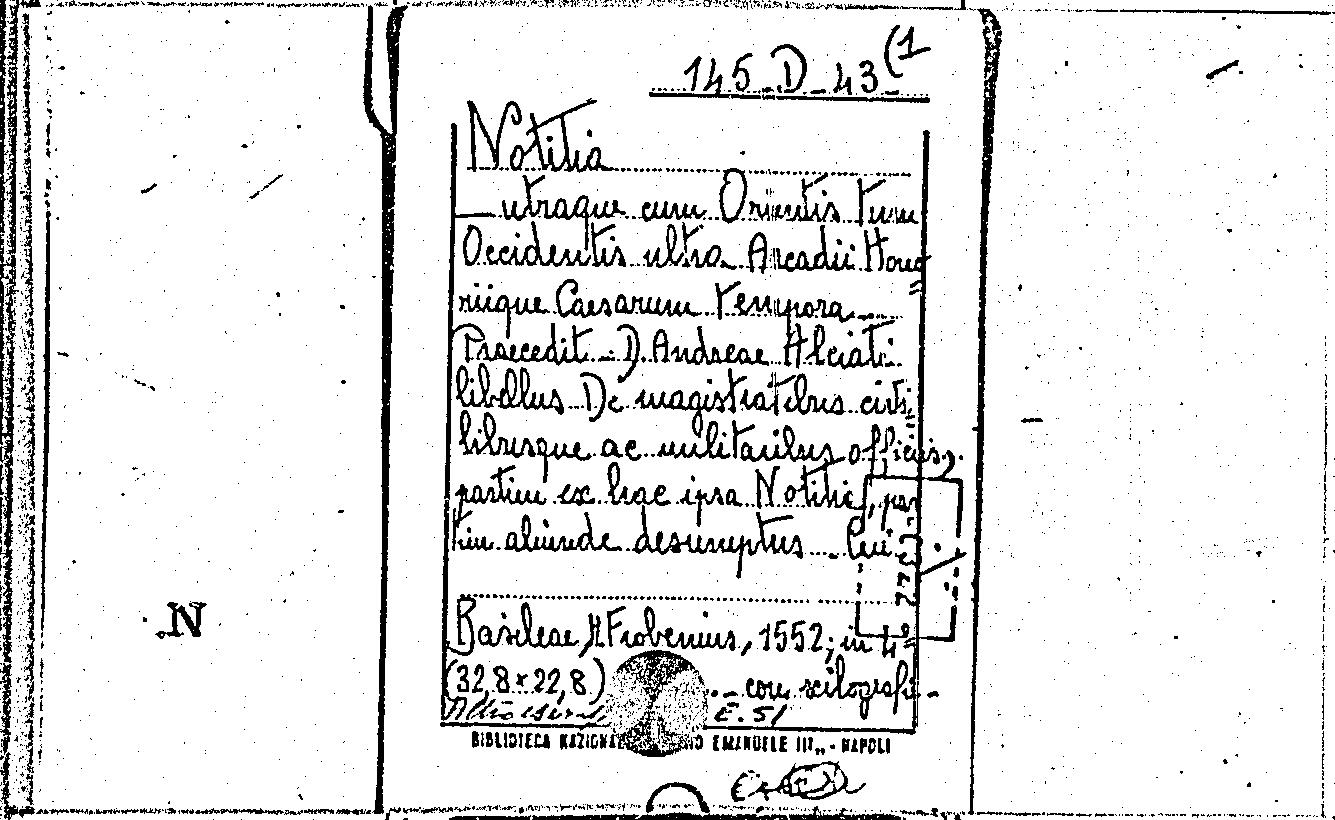 145_D_43(1
Notitia
— utraque cum Orientis tum
Occidentis ultra Arcadii Hono=
riique Caesarum tempora_
Praecedit - D. Andreae Alciati
libellus De magistratibus civi=
libusque ac militaribus officiis,
partim ex hac ipsa Notitia, par
tim aliunde desumptus _ Cui
Basileae, H Frobenius, 1552; in 4°
(32,8 × 22,8) _ con silografie -
E. 51
BIBLIOTECA NAZIONA EMANUELE III,, - NAPOLI
N